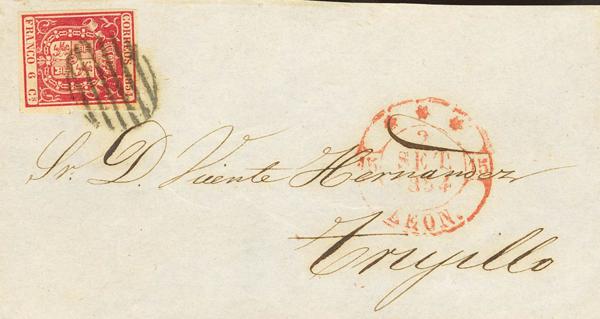 CORREOS 1854
FRANCO 6 Cs
SET.
854
LEON.
Sr. D. Vicente Hernandez
Trujillo